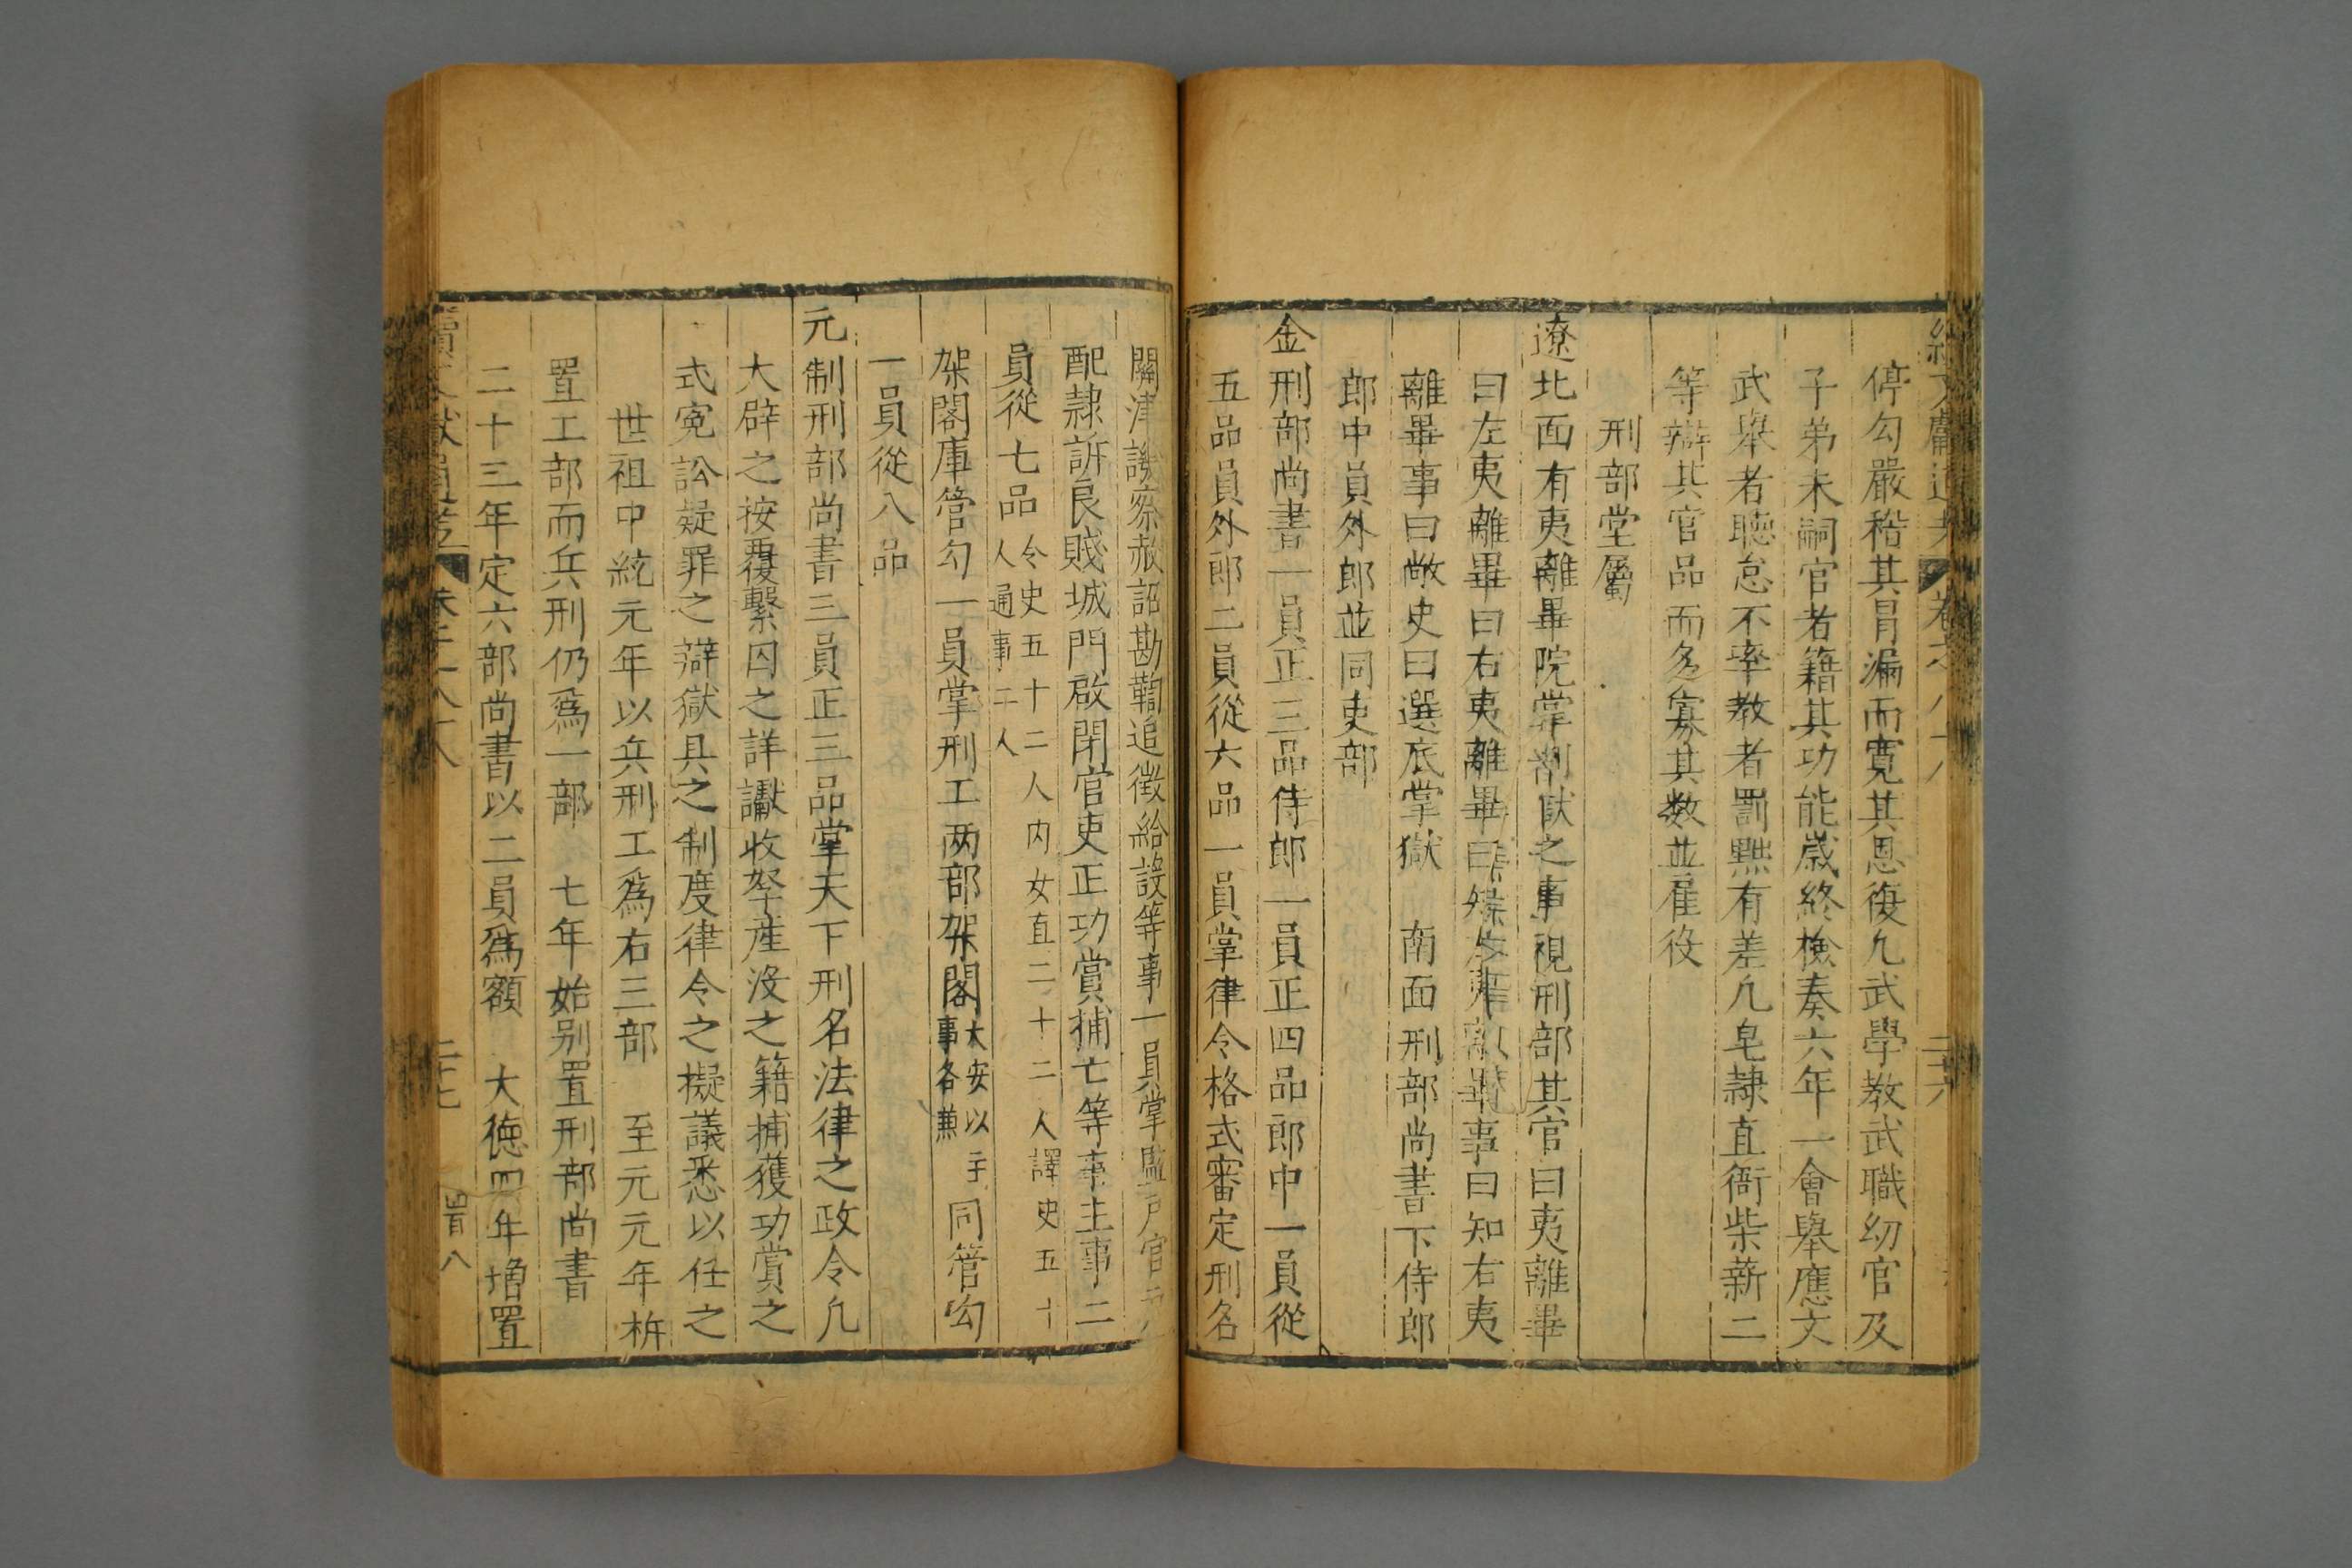 停勾嚴稽其冒漏而寛其恩復凢武學教武職幼官及
子弟未嗣官者籍其功能歲終檢奏六年一會舉應文
武舉者聴怠不率教者罰黜有差凢皂隷直衙柴薪二
等辯其官品而多寡其数並雇役
刑部堂屬
遼北面有夷離畢院掌刑獄之事視刑部其官曰夷離畢
曰左夷離畢曰右夷離畢曰知左夷離畢事曰知右夷
離畢事曰敞史曰選底掌獄 南面刑部尚書下侍郎
郎中員外郎並同吏部
金刑部尚書一員正三品侍郎一員正四品郎中一員從
五品員外郎二員從六品一員掌律令格式審定刑名
關津譏察赦詔勘鞫追徵給設等事一員掌監户官户
配隷訴良賤城門啟閉官吏正功賞捕亡等事主事二
員從七品令史五十二人内女直二十二人譯史五十
人通事二人
架閣庫管勾一員掌刑工两部架閣大安以
事各兼
同管勾
一員從八品
元制刑部尚書三員正三品掌天下刑名法律之政令凢
大辟之按覆繫囚之詳讞收孥産没之籍捕獲功賞之
式寃訟疑罪之辯獄具之制度律令之擬議悉以任之
世祖中統元年以兵刑工爲右三部 至元元年析
置工部而兵刑仍爲一部 七年始别置刑部尚書
二十三年定六部尚書以二員爲額 大徳四年增置